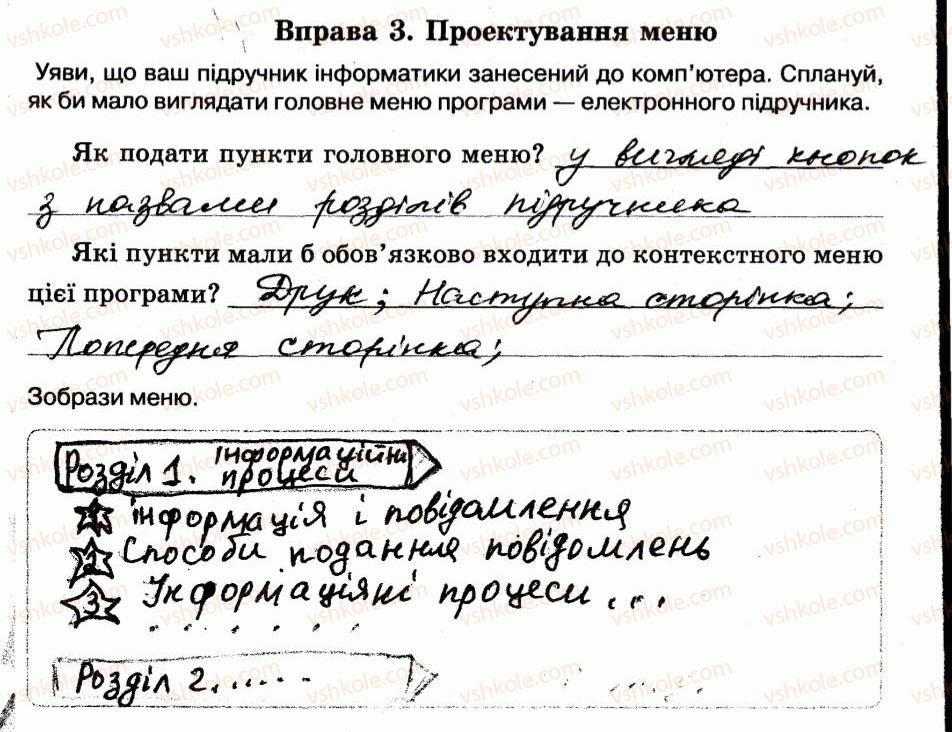 Вправа 3. Проектування меню
Уяви, що ваш підручник інформатики занесений до комп'ютера. Сплануй,
як би мало виглядати головне меню програми — електронного підручника.
Як подати пункти головного меню? у вигляді кнопок
з назвами розділів підручника
Які пункти мали б обов'язково входити до контекстного меню
цієї програми? Друк; Наступна сторінка;
Попередня сторінка;
Зобрази меню.
Розділ 1. інформаційні
процеси
1 інформація і повідомлення
2 Способи подання повідомлень
3 Інформаційні процеси ...
. . . . . .
Розділ 2. .....
vshkole.com